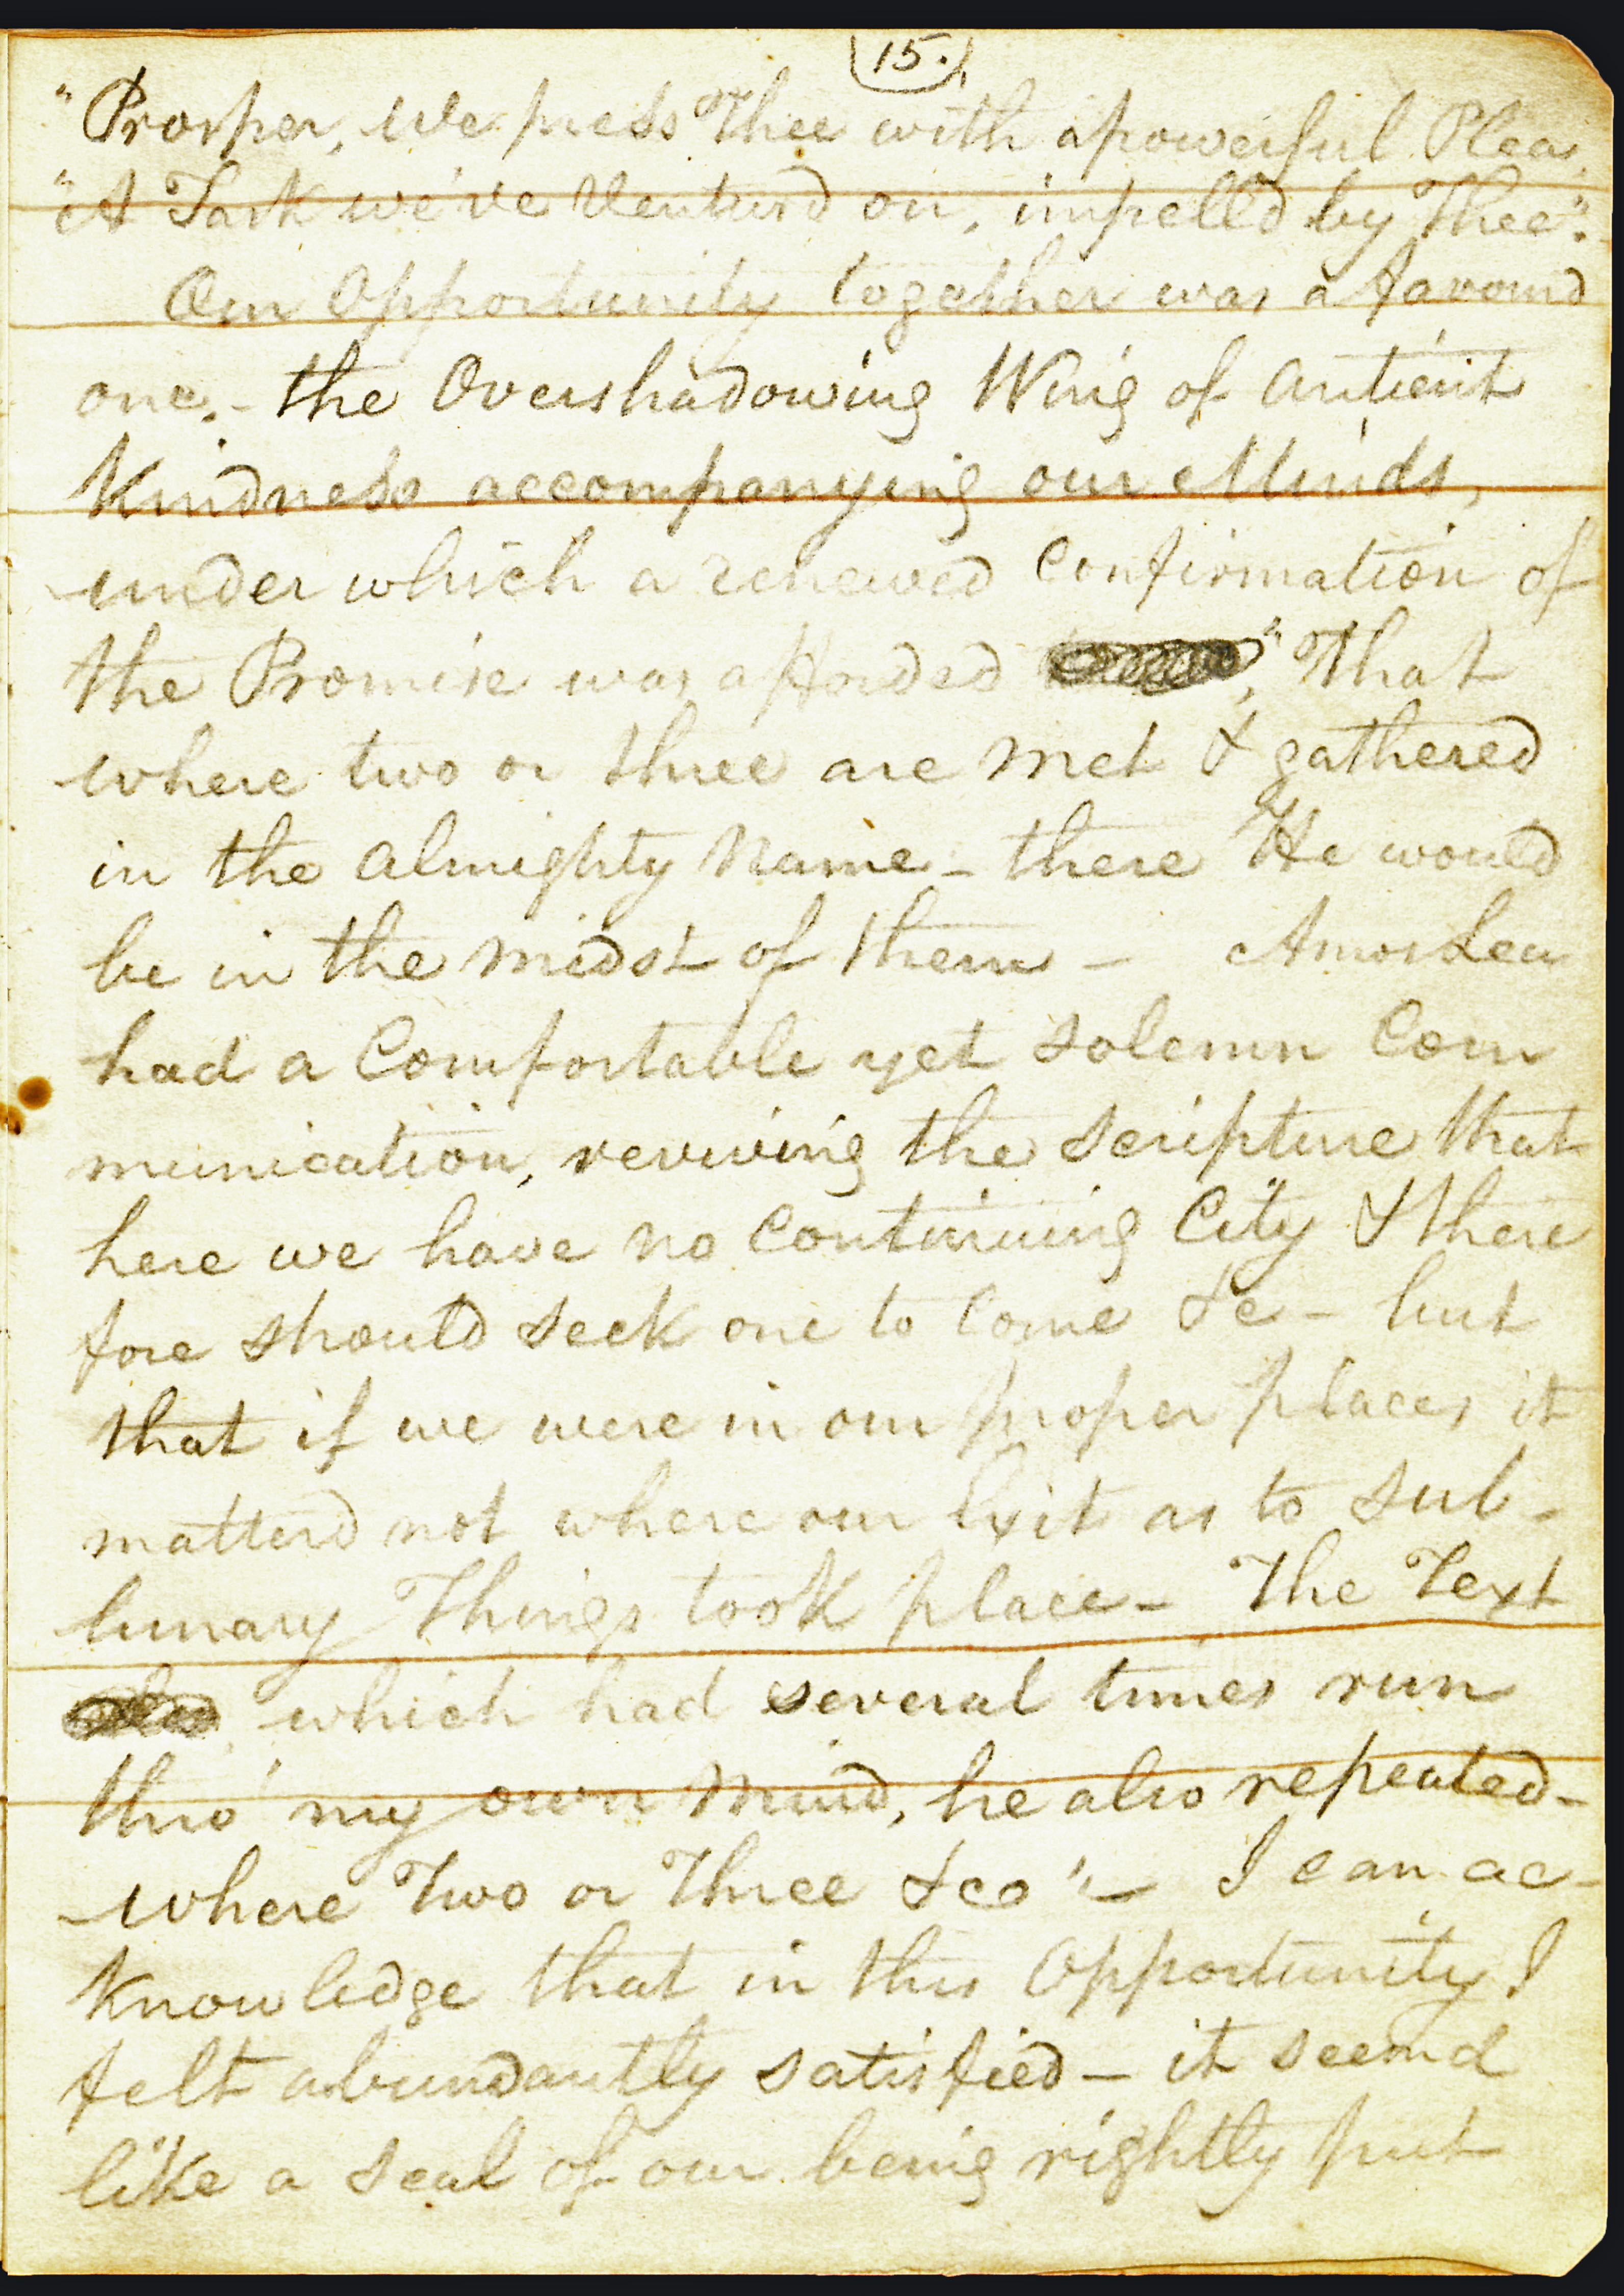 15.
"Prosper, we press Thee with a powerful Plea,
"A Task we've Ventur'd on, impell'd by Thee".
Our Opportunity together was a favourd
one. - the Overshadowing Wing of Antient
Kindness accompanying our Minds,
under which a renewed Confirmation of
the Promise was afforded , "That
where two or three are met & gathered
in the Almighty Name - there He would
be in the midst of them - Amos Lea
had a Comfortable yet Solemn Com
munication, reviving the Scripture that
here we have no Continuing City & there
fore should seek one to Come &c - but
that if we were in our proper places it
matterd not where our Exit as to Sub-
lunary Things took place - The Text
which had several times run
thro' my own Mind, he also repeated -
where Two or Three &ca" - I can ac-
knowledge that in this Opportunity I
felt abundantly satisfied - it seemd
like a Seal of our being rightly put